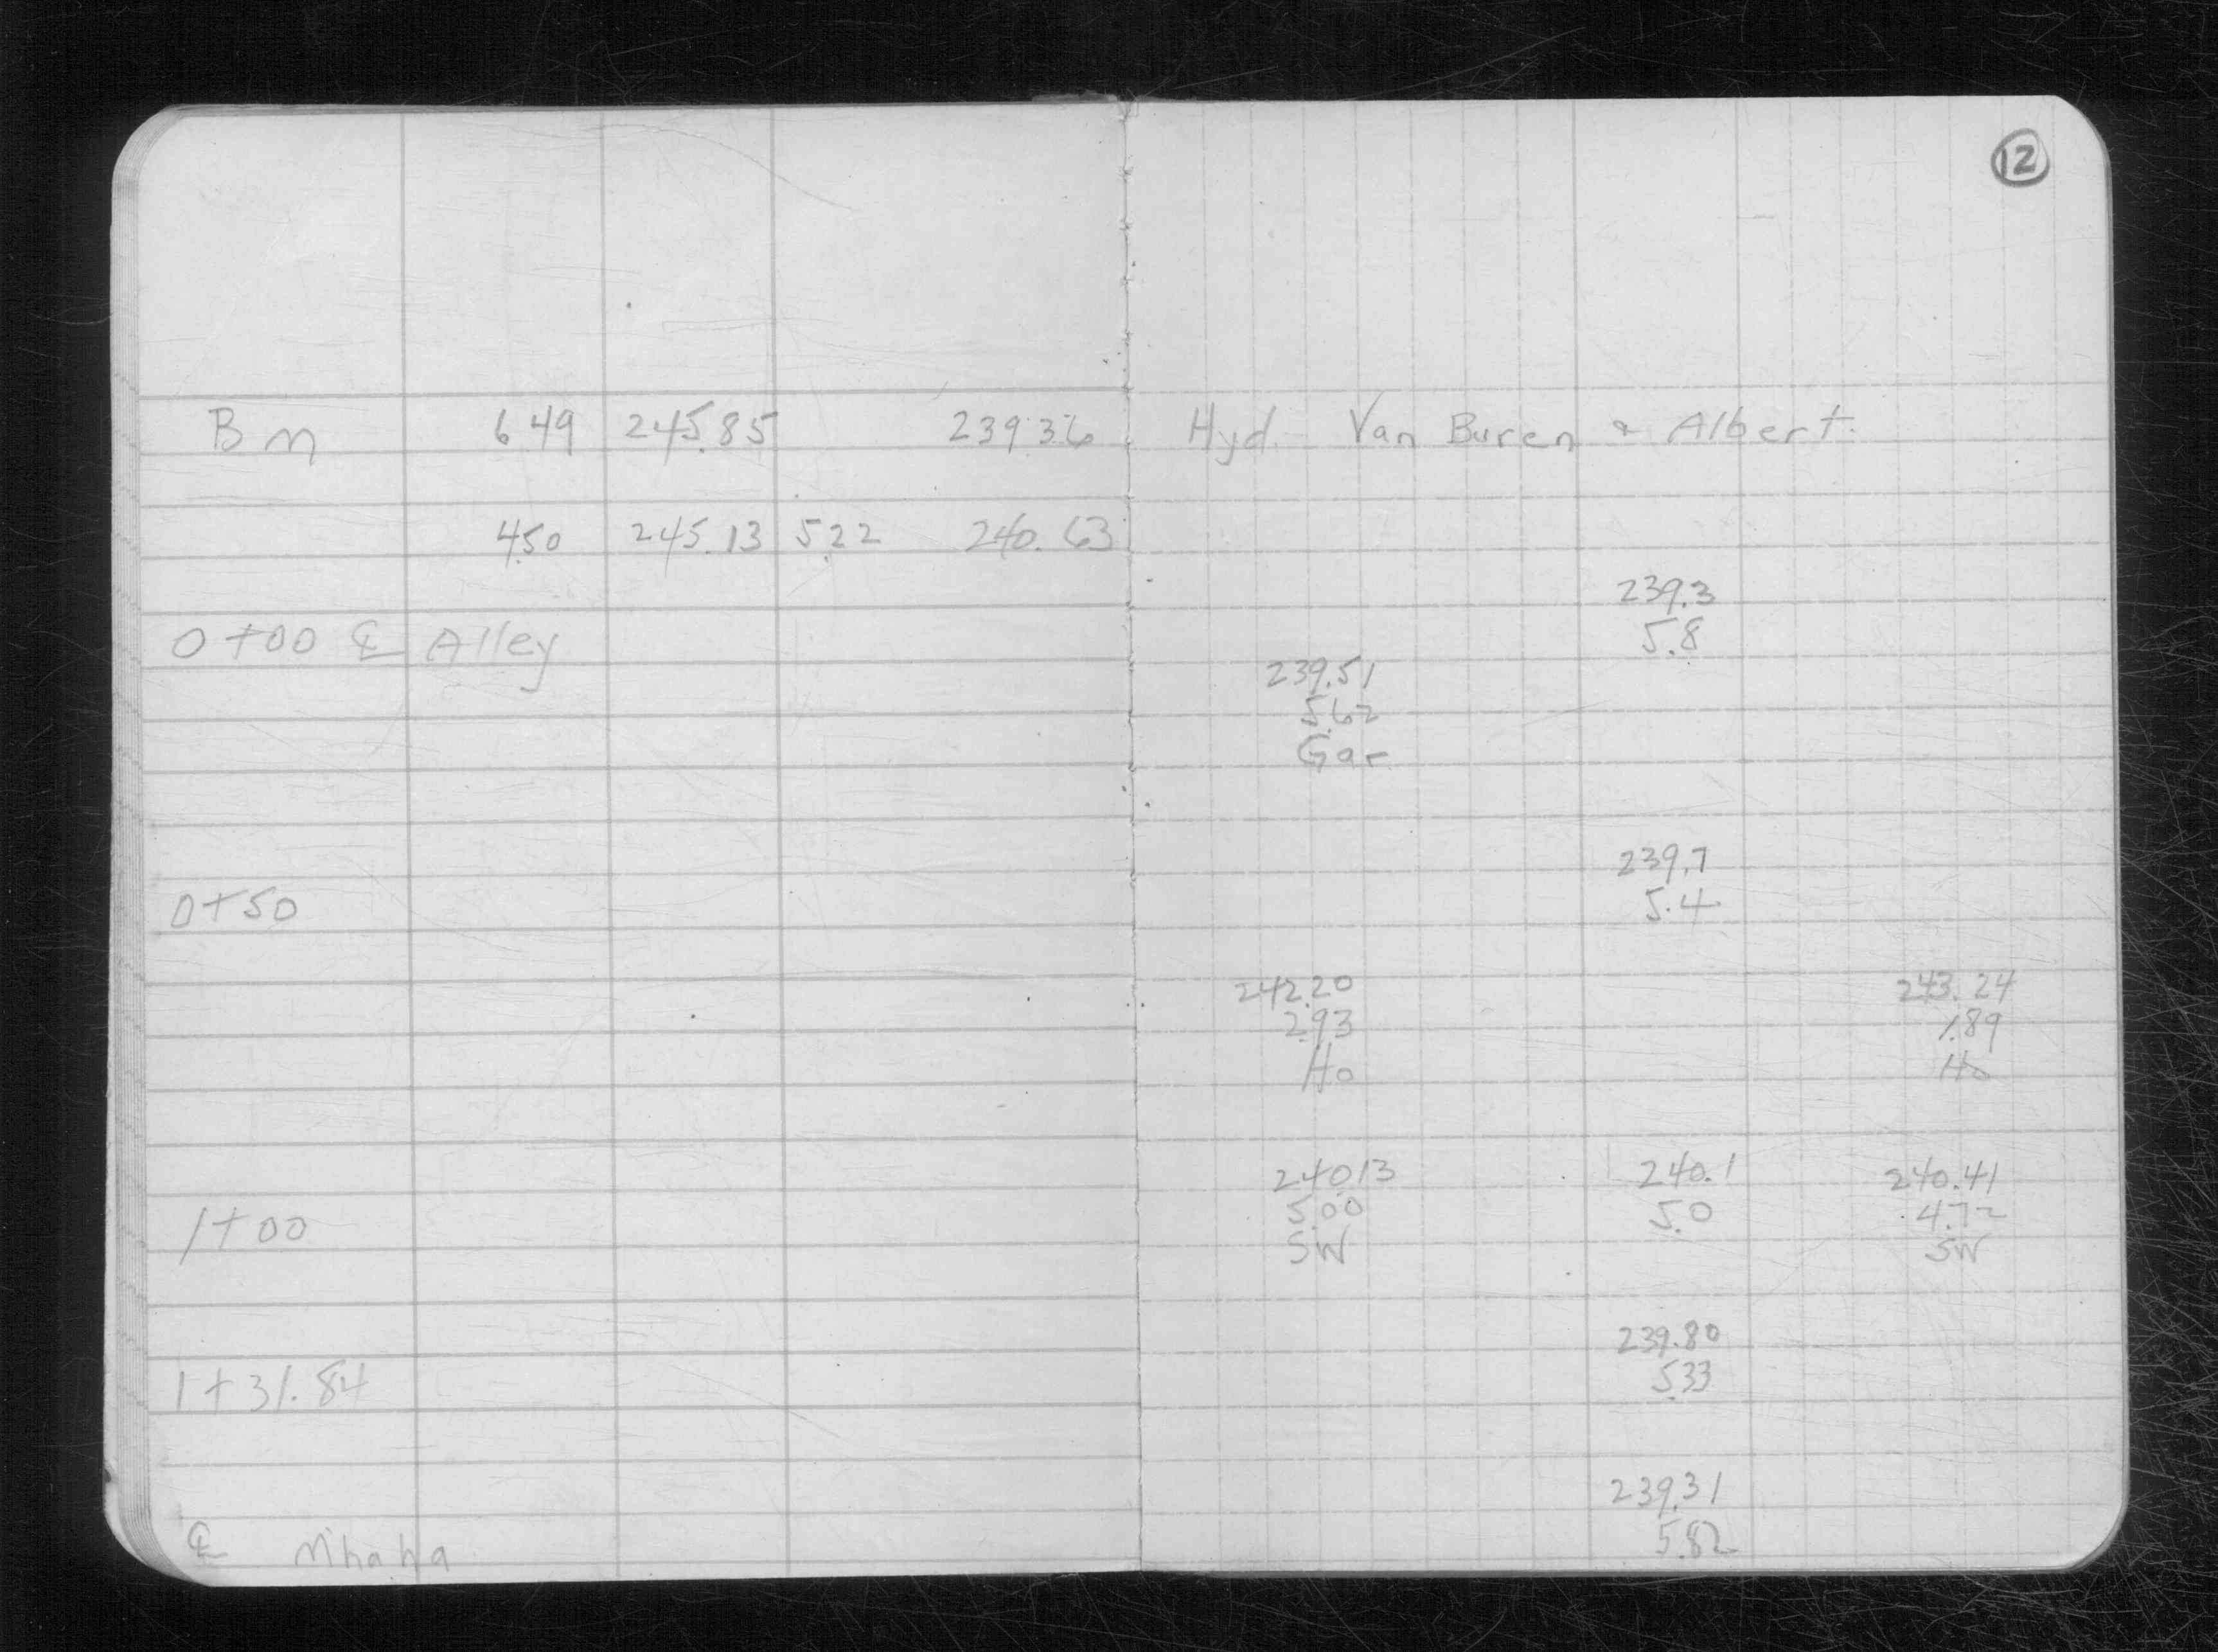 12
Bm 6.49 245.85 239.36 Hyd. Van Buren & Albert.
4.50 245.13 5.22 240.63
239.3
0+00 ℄ Alley 5.8
239.51
5.62
Gar
239.7
0+50 5.4
242.20 243.24
2.93 1.89
Ho Ho
240.13 240.1 240.41
1+00 5.00 5.0 4.72
SW SW
239.80
1+31.84 5.33
239.31
℄ Mhaha 5.82